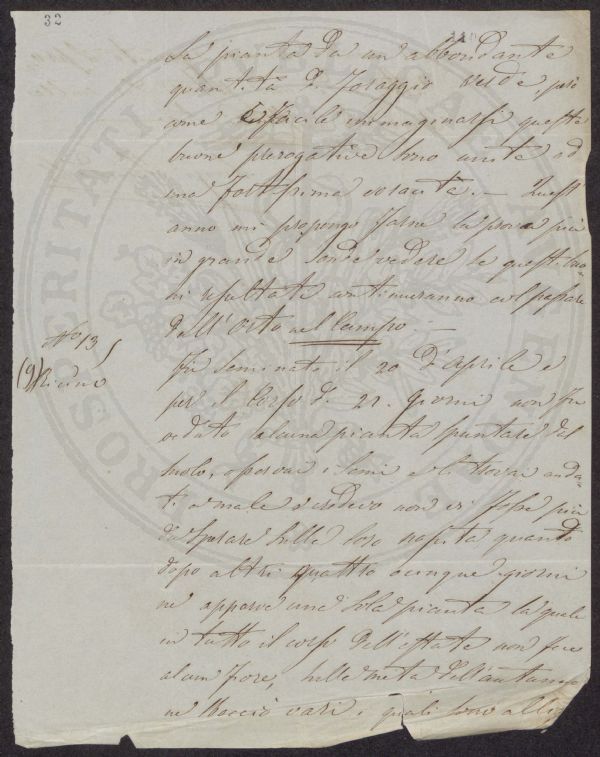 32
La pianta da un'abbondante
quantità di foraggio verde, però
come è facile immaginarsi queste
buone prerogative sono unite ad
una fortissima voracità. — Quest'
anno mi propongo farne la prova più
in grande onde vedere se questi buo-
ni resultati continueranno col passare
dall'Orto nel Campo. —
No 13
(9) Ricino
Fu seminato il 20 d'Aprile e
per il corso di 21 giorni non fu
veduto alcuna pianta spuntare dal
suolo, osservai i semi e li trovai anda-
ti a male e credevo non vi fosse più
da sperare sulla loro nascita quando
dopo altri quattro o cinque giorni
ne apparve una sola pianta la quale
in tutto il corso dell'estate non fece
alcun fiore, nella metà dell'autunno
ne sbocciò vari i quali sono